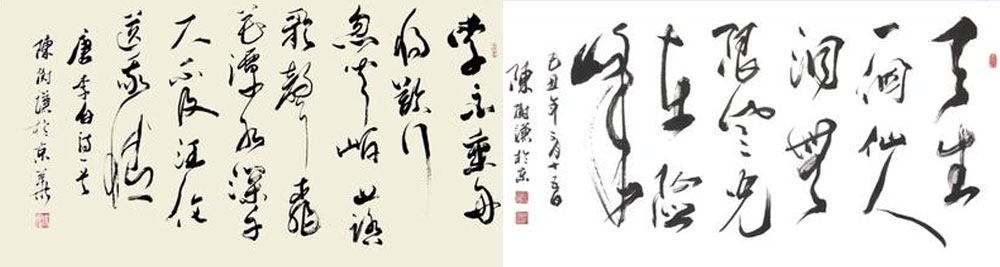 李白乘舟
将欲行
忽闻岸上踏
歌聲桃
花潭水深千
尺不及汪伦
送我情
唐李白诗一首
陳於京華
天生
一個仙人
洞無
限风光
在险
峰
己丑年月十五日
陳於京